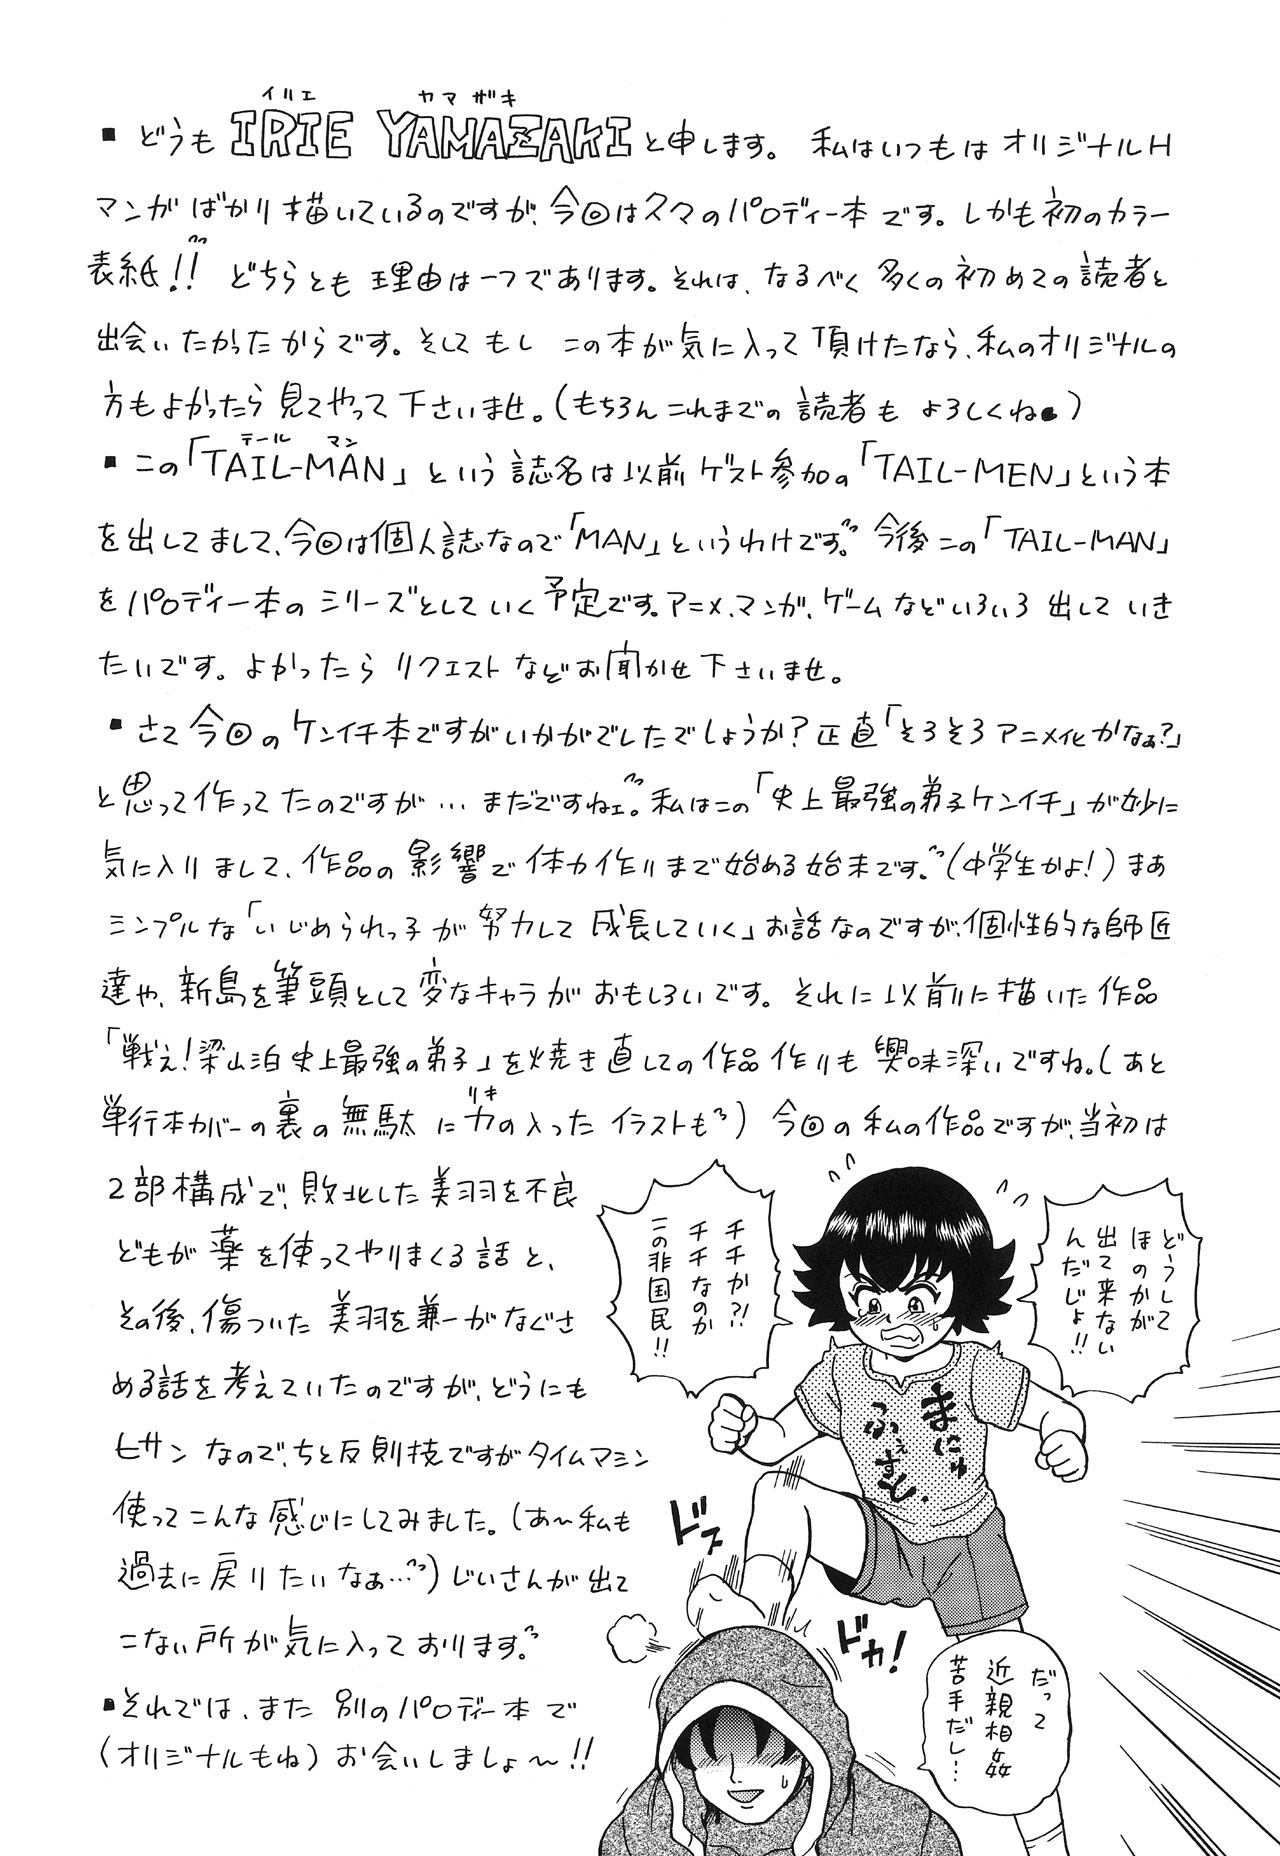 イリエ ヤマザキ
▪どうもIRIE YAMAZAKIと申します。私はいつもはオリジナルH
マンガばかり描いているのですが、今回は久々のパロディー本です。しかも初のカラー
表紙!! どちらとも理由は一つであります。それは、なるべく多くの初めての読者と
出会いたかったからです。そしてもしこの本が気に入って頂けたなら、私のオリジナルの
方もよかったら見てやって下さいませ。(もちろんこれまでの読者もよろしくね●)
テール マン
▪この「TAIL-MAN」という誌名は以前ゲスト参加の「TAIL-MEN」という本
を出してまして、今回は個人誌なので「MAN」というわけです。今後この「TAIL-MAN」
をパロディー本のシリーズとしていく予定です。アニメ、マンガ、ゲームなどいろいろ出していき
たいです。よかったらリクエストなどお聞かせ下さいませ。
▪さて今回のケンイチ本ですがいかがでしたでしょうか?正直「そろそろアニメ化かなぁ?」
と思って作ってたのですが…まだですねェ。私はこの「史上最強の弟子ケンイチ」が妙に
気に入りまして、作品の影響で体力作りまで始める始末です。(中学生かよ!)まあ
シンプルな「いじめられっ子が努力して成長していく」お話なのですが、個性的な師匠
達や、新島を筆頭として変なキャラがおもしろいです。それに以前に描いた作品
「戦え!梁山泊史上最強の弟子」を焼き直しての作品作りも興味深いですね。(あと
リキ
単行本カバーの裏の無駄に力の入ったイラストも)今回の私の作品ですが、当初は
2部構成で、敗北した美羽を不良
どもが薬を使ってやりまくる話と、
その後、傷ついた美羽を兼一がなぐさ
める話を考えていたのですが、どうにも
ヒサンなので、ちと反則技ですがタイムマシン
使ってこんな感じにしてみました。(あ〜私も
過去に戻りたいなぁ…)じいさんが出て
こない所が気に入っております。
▪それでは、また別のパロディー本で
(オリジナルもね)お会いしましょ〜!!
どうして
ほのかが
出て来ない
んだじょ!!
チチか?!
チチなのか
この非国民!!
まにゅ
ふぇすと.
ドス
ドカ!
だって
近親相姦
苦手だし…